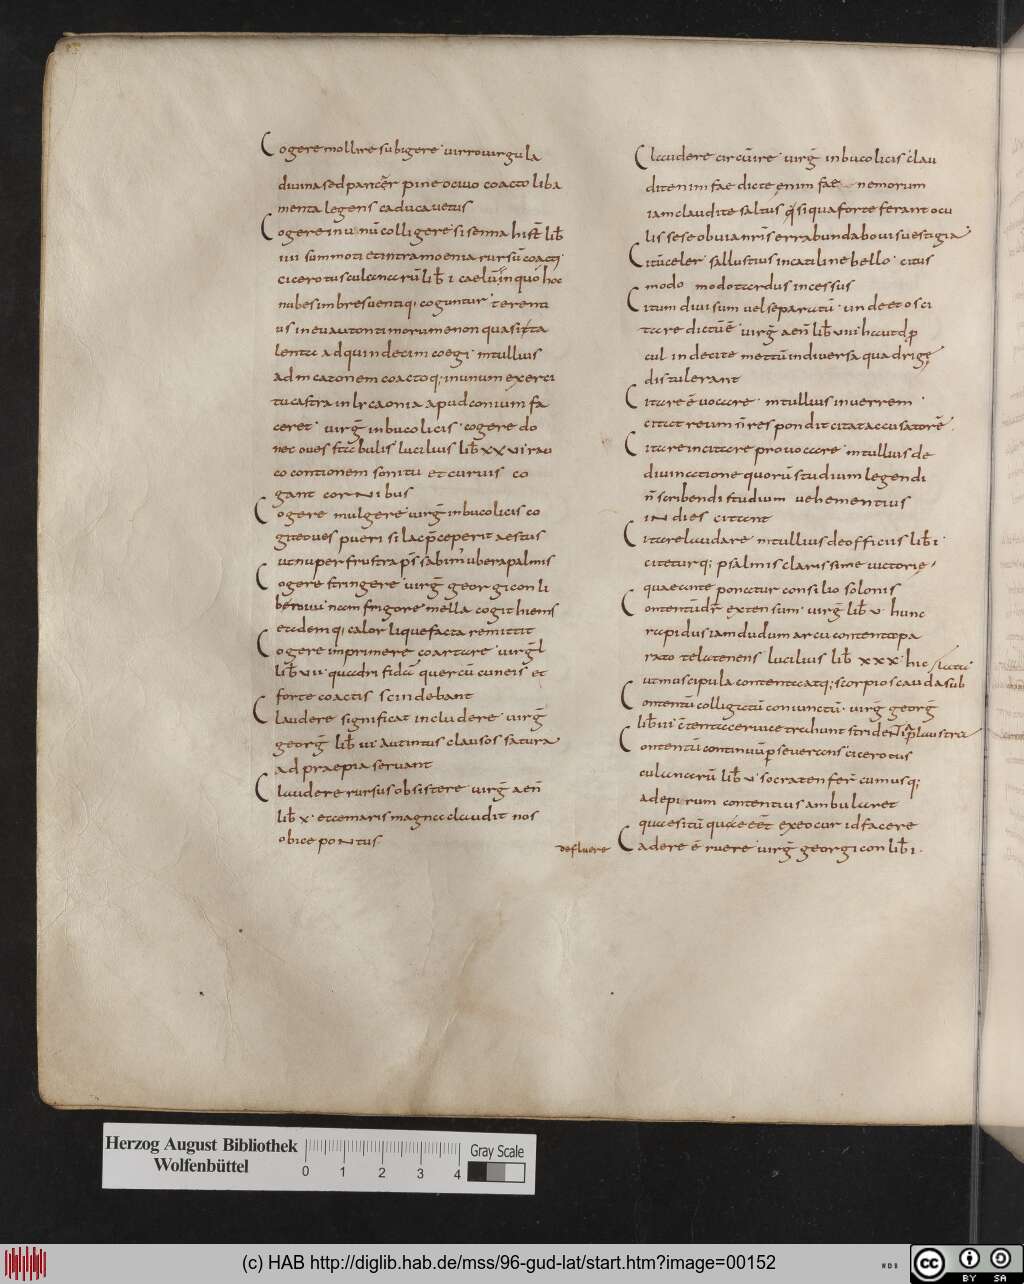 Cogere mollire subigere uirro uirgula
diuina sed pancr̄ pine ociuo coacto liba
menta legens caduca uetus
Cogere in unū colligere sisenna hist̄ lib̄
iiii summoti et intra moenia rursū coacti
cicero tusculanarū lib̄ i caelū in quo hoc
nubes imbres uentiq; coguntur terenti
us in eu autontimorumenon quasi ita
lenta ad quindecim coegi m tullius
ad m catonem coactoq; in unum exerci
tu castra in lycaonia apud conium fa
ceret uirḡ in bucolicis cogere do
nec oues stabulis lucilius lib̄ xxvi rau
co contionem sonitu et curuis co
gant cornibus
Cogere mulgere uirḡ in bucolicis co
gite oues pueri si lac p̄ceperit aestus
ut nuper frustra p̄ssabim' ubera palmis
Cogere stringere uirḡ georgicon li
bero iiii nam frigore mella cogit hiems
eademq; calor liquefacta remittit
Cogere inprimere coartare uirgl̄
lib̄ vii quadrifidā quercū cuneis et
forte coactis scindebant
Claudere significat includere uirḡ
georḡ lib̄ iii aut intus clausos satura
ad praepia seruant
Claudere rursus obsistere uirḡ aen̄
lib̄ x ecce maris magna claudit nos
obice pontus
Claudere circūire uirḡ in bucolicis clau
dite nimfae dicte enim fae nemorum
iam claudite saltus q̄ si qua forte ferant ocu
lis sese obuia nr̄is errabunda bouis uestigia
Citū celer sallustius in catiline bello citus
modo modo tardus incessus
Citum diuisum uel separatū unde et osci
tare dictū ē uirḡ aen̄ lib̄ viii haut p
cul inde cite mettū in diuersa quadrige
distulerant
Citare ē uocare m tullius in uerrem
citat reum n̄ respondit citat accusatorē
Citare incitare prouocare m tullius de
diuinatione quorū studium legendi
n̄ scribendi studium uehementius
in dies citant
Citare laudare m tullius de officiis lib̄ i
citeturq; psalmis clarissime uictorie
quae ante ponatur consilio solonis
Contentū dr̄ extensum uirḡ lib̄ v hunc
rapidus iamdudum arcu contento pa
rato tela tenens lucilius lib̄ xxx hic
ut muscipula contenta atq; scorpios cauda sub
Contentū colligatū coniunctū uirḡ georḡ
lib̄ iii c̄tenta ceruice trahunt stridentia plaustra
Contentū continuū pseuerans cicero tus
culanarū lib̄ v socraten fer̄ cum usq;
ad epi rum contentius ambularet
quaesitū quae eēt ex eo cur id facere
defluere
Cadere ē ruere uirḡ georgicon lib̄ i
Herzog August Bibliothek
Wolfenbüttel
0 1 2 3 4
Gray Scale
(c) HAB http://diglib.hab.de/mss/96-gud-lat/start.htm?image=00152
WDB
cc BY SA